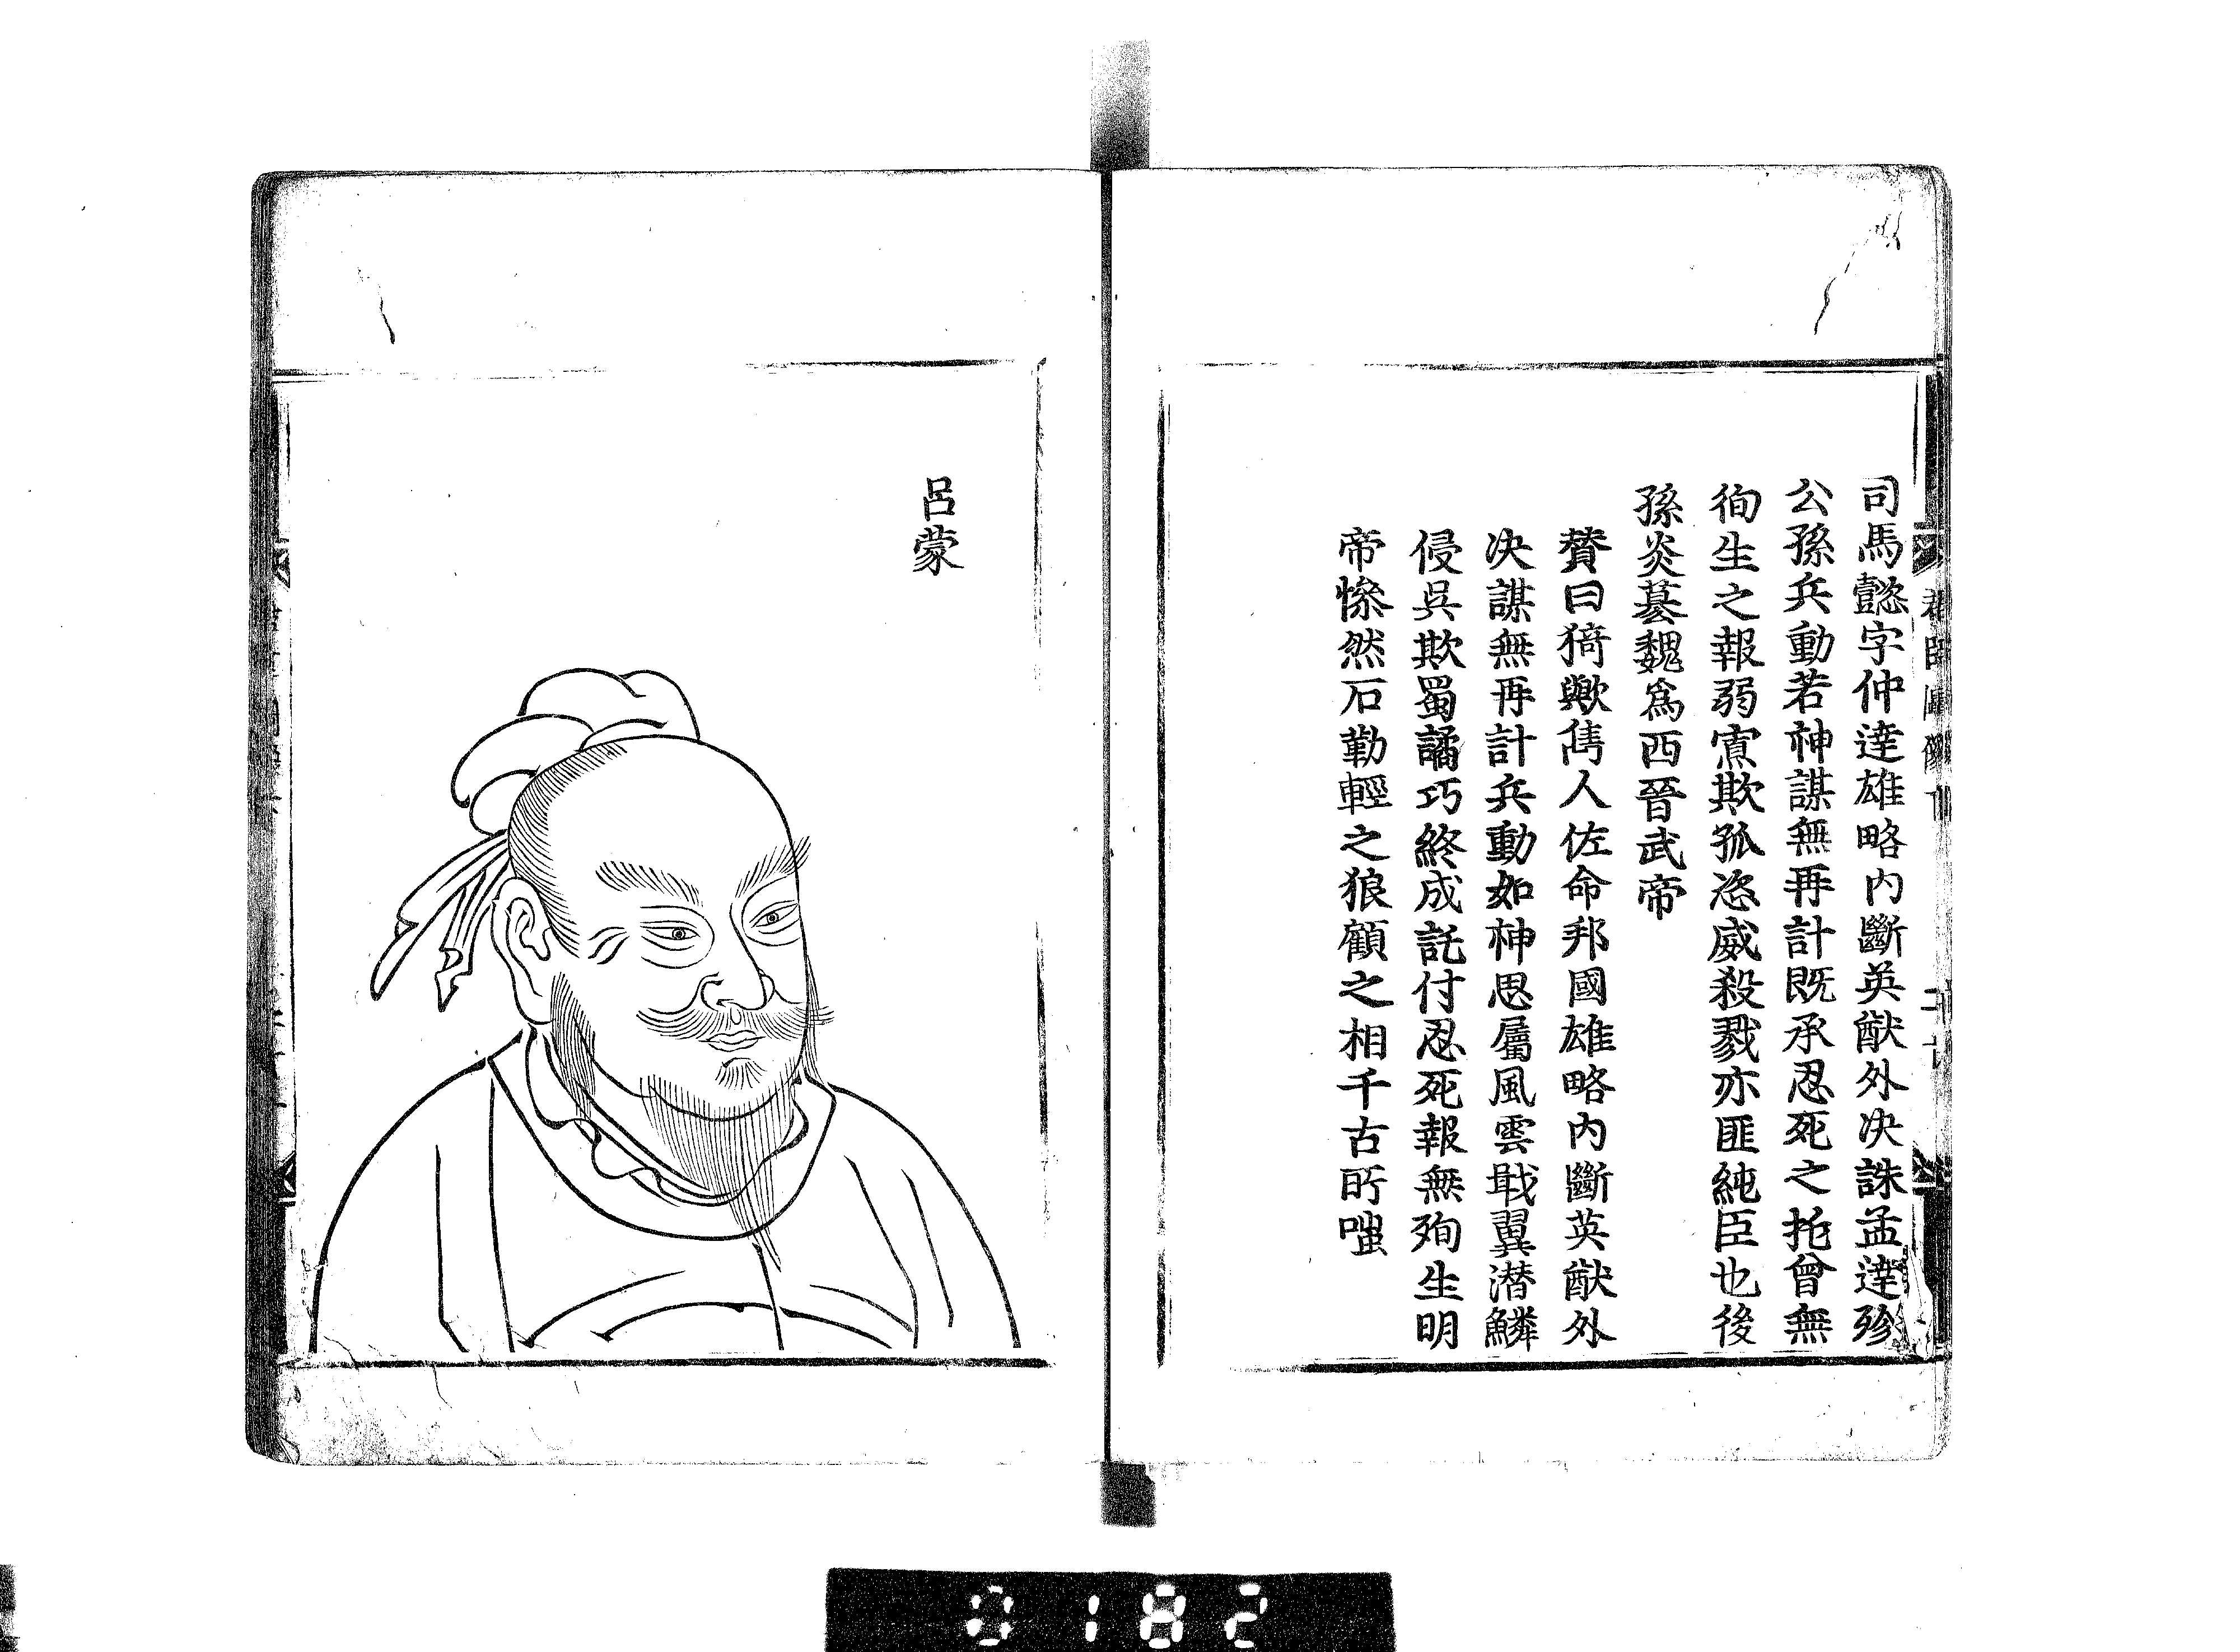 司馬懿字仲達雄略內斷英猷外决誅孟達殄
公孫兵動若神謀無再計既承忍死之托曾無
徇生之報弱寡欺孤恣威殺戮亦匪純臣也後
孫炎篡魏爲西晉武帝
贊曰猗歟儁人佐命邦國雄略内斷英猷外
决謀無再計兵動如神思屬風雲戢翼潜鱗
侵吳欺蜀譎巧終成託付忍死報無殉生明
帝慘然石勒輕之狼顧之相千古所嗤
呂蒙
0182